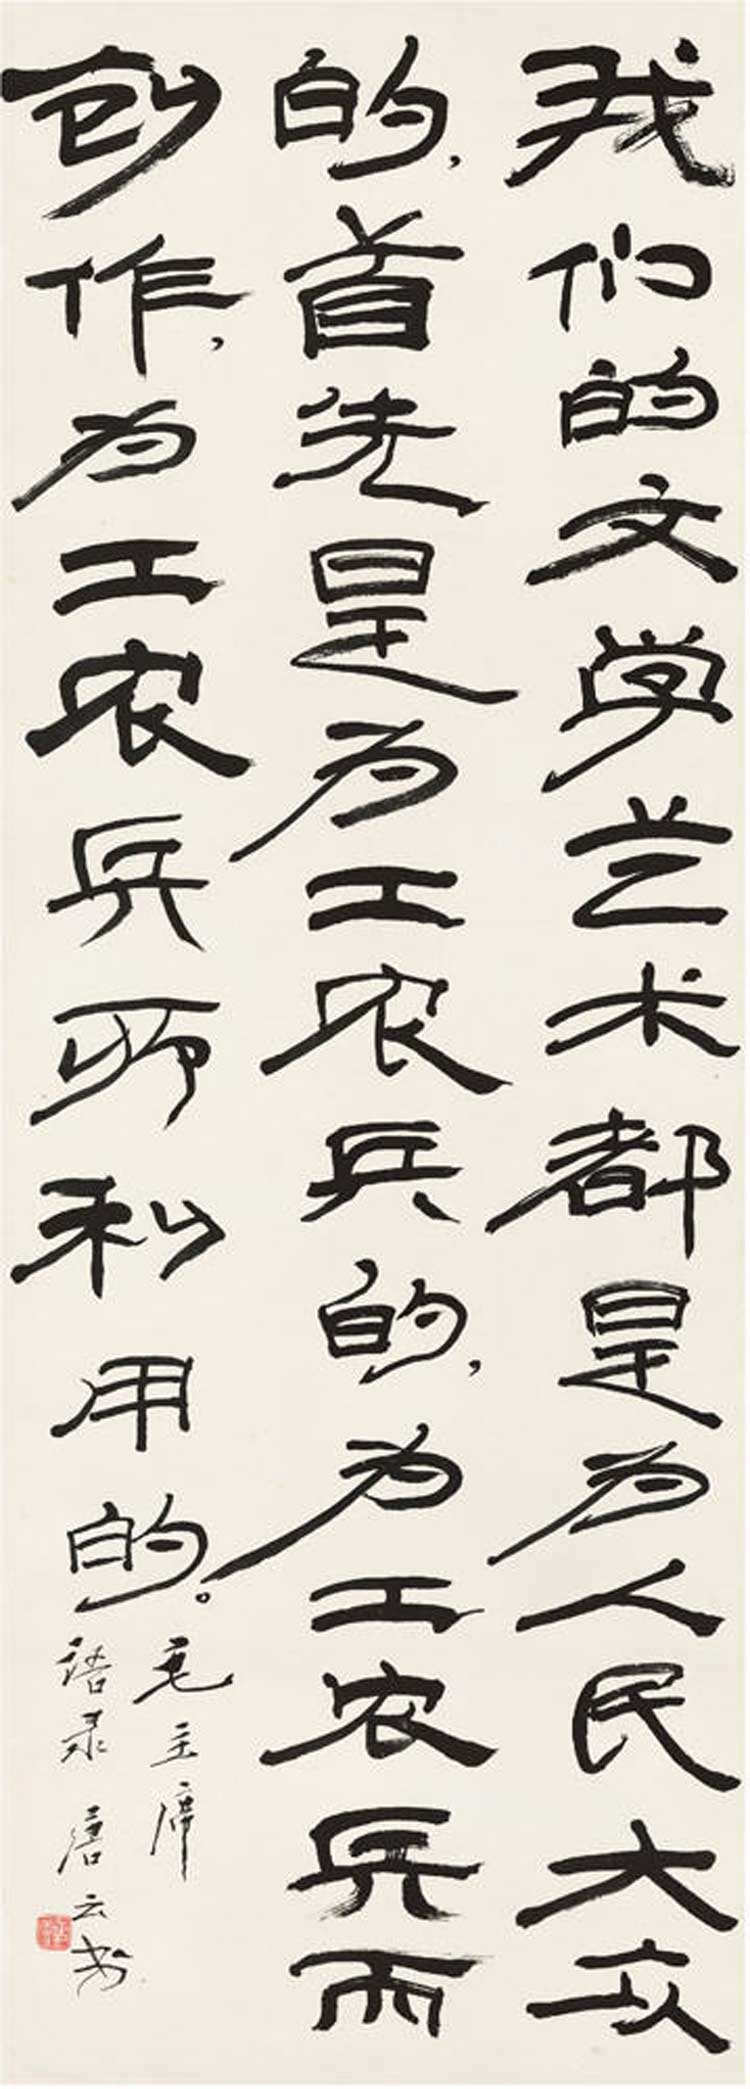 我们的文学艺术都是为人民大众
的，首先是为工农兵的，为工农兵而
创作，为工农兵所利用的。
毛主席
语录 唐云书